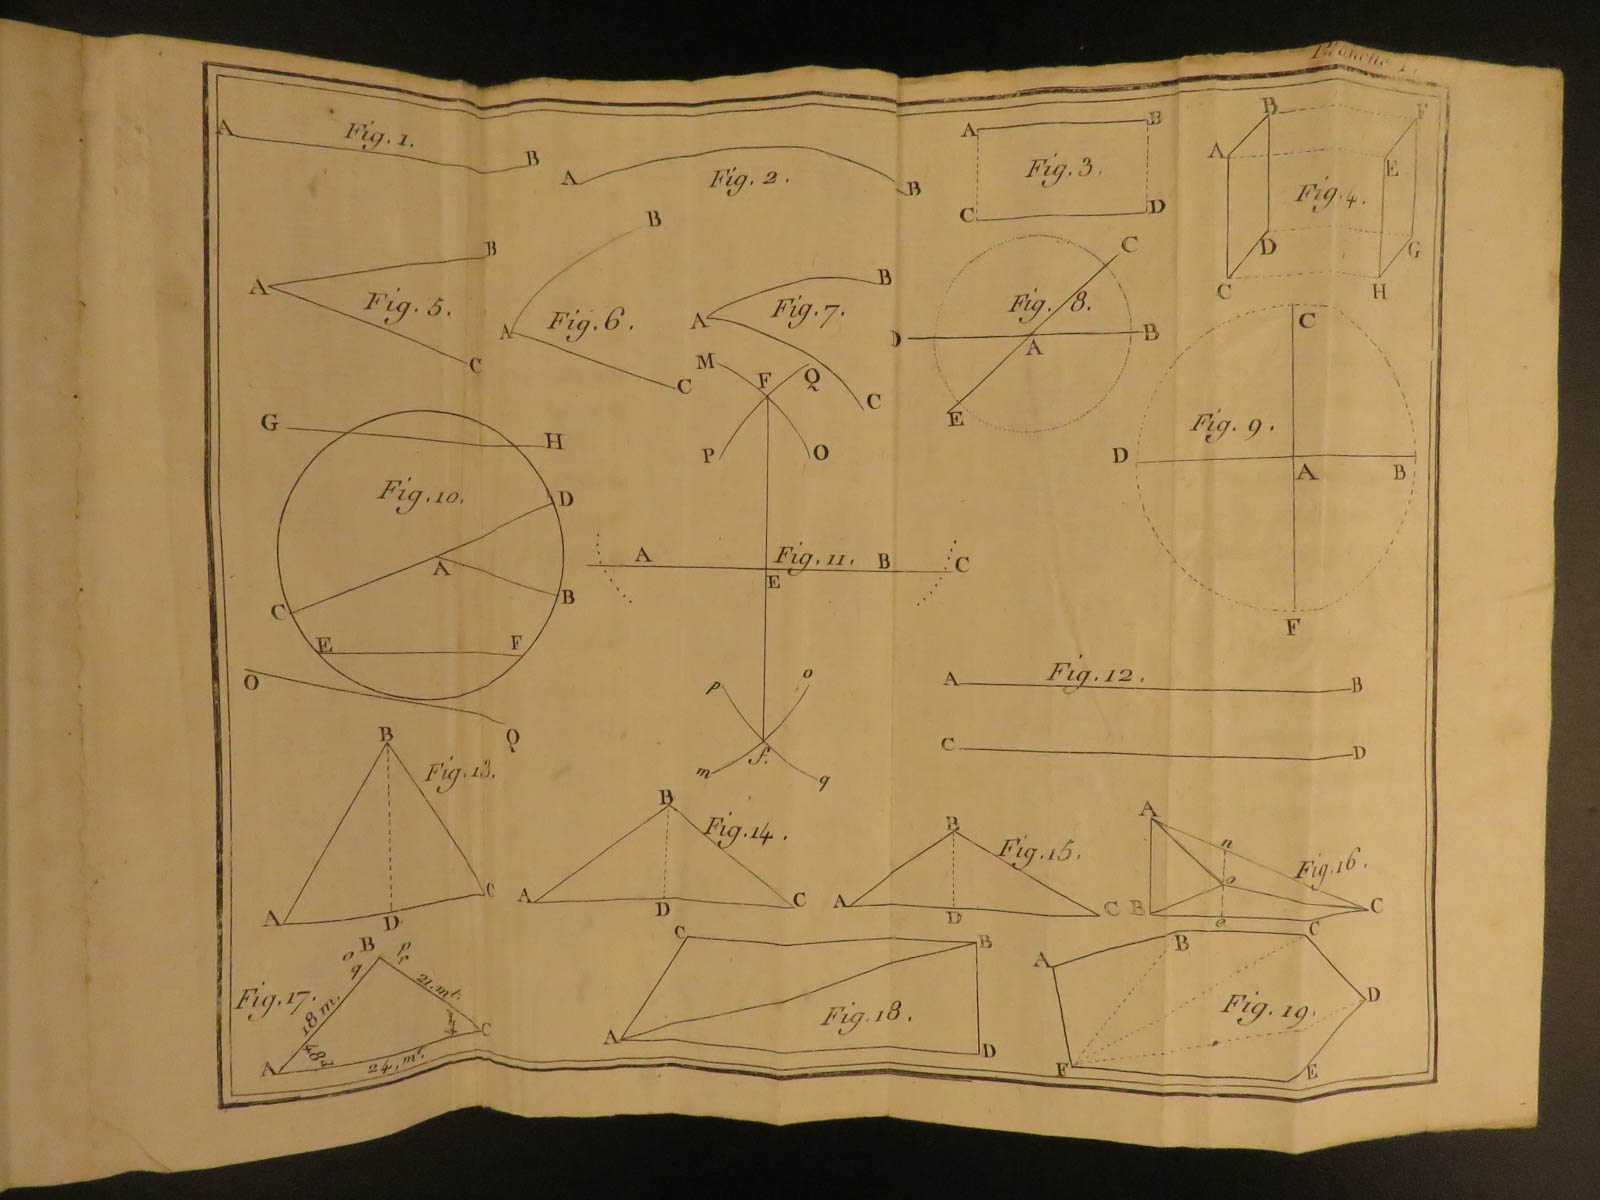 Planche I.
A Fig. 1. B
A Fig. 2. B
A B
Fig. 3.
C D
B F
A E
Fig. 4.
D G
C H
B
A Fig. 5.
C
B
A Fig. 6.
C
B
A Fig. 7.
C
C
Fig. 8.
D A B
E
C
Fig. 9.
D A B
F
G H
Fig. 10.
D
A
C B
E F
O Q
M F Q
P O
A Fig. 11. B C
E
p o
m f. q
A Fig. 12. B
C D
B
Fig. 13.
A D C
B
Fig. 14.
A D C
B
Fig. 15.
A D C
A
n
Fig. 16.
o
B e C
B
o q
p
Fig. 17.
18 m.
21. mt.
C
A 48d
24, mt.
C B
Fig. 18.
A D
B C
A
D
Fig. 19.
F E